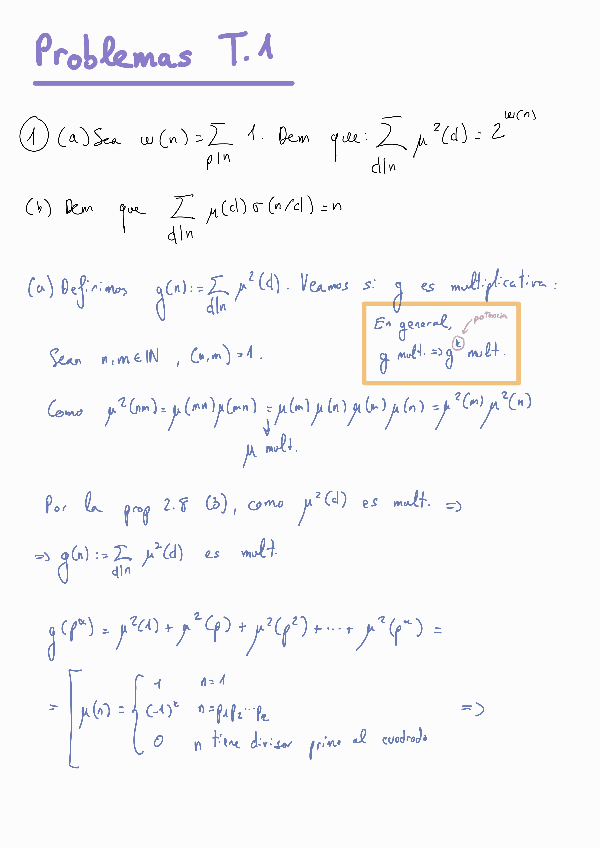 Problemas T.1
① (a) Sea w(n) = ∑_{p|n} 1. Dem que: ∑_{d|n} μ²(d) = 2^{w(n)}
(b) Dem que ∑_{d|n} μ(d) σ(n/d) = n
(a) Definimos g(n) := ∑_{d|n} μ²(d). Veamos si g es multiplicativa:
En general, potencia
g mult. => g^k mult.
Sean n, m ∈ ℕ, (n,m) = 1.
Como μ²(nm) = μ(mn)μ(mn) = μ(m)μ(n)μ(m)μ(n) = μ²(m)μ²(n)
↓
μ mult.
Por la prop 2.8 (b), como μ²(d) es mult. =>
=> g(n) := ∑_{d|n} μ²(d) es mult.
g(p^α) = μ²(1) + μ²(p) + μ²(p²) + ... + μ²(p^α) =
= [ μ(n) = { 1 n = 1
(-1)^r n = p₁p₂...p_r =>
0 n tiene divisor primo al cuadrado